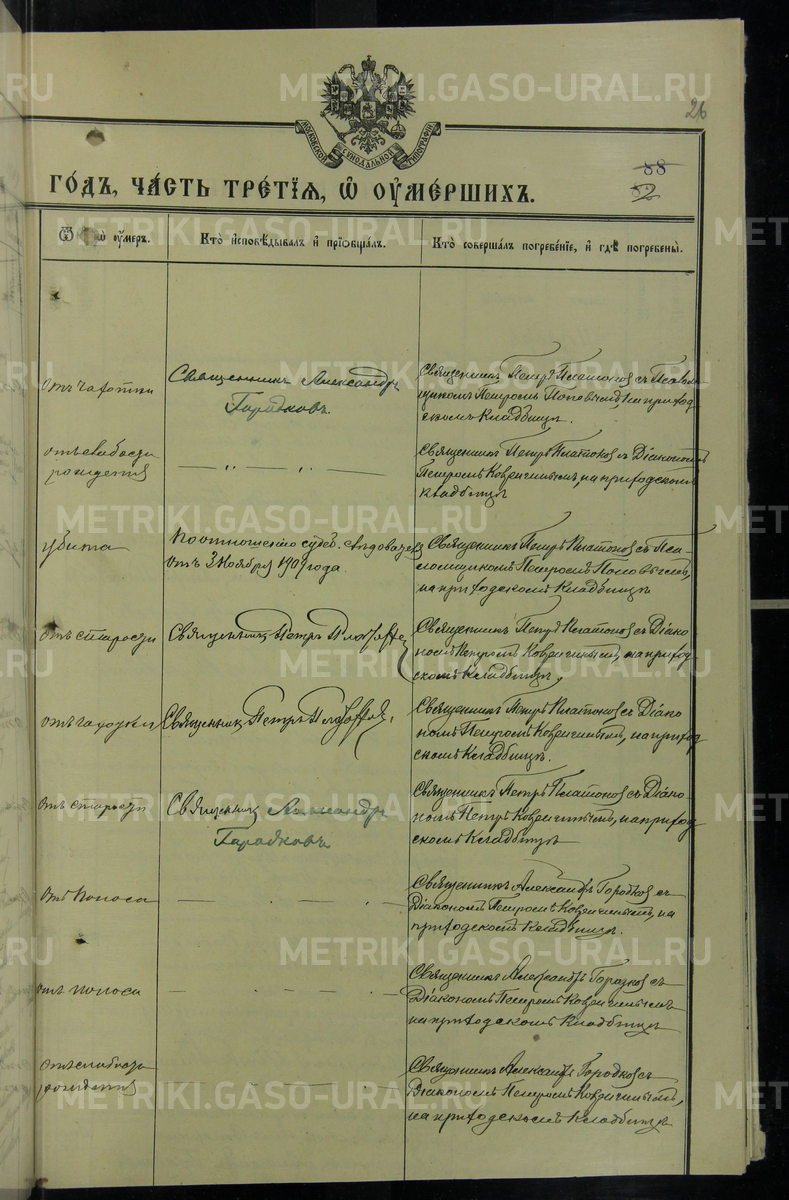 METRIKI.GASO-URAL.RU
МОСКОВСКОЙ СУНОДАЛЬНОЙ ТИПОГРАФІИ
26
88
82
ГОДЪ, ЧАСТЬ ТРЕТІЯ, Ѿ ОУМЕРШИХЪ.
Ѿ ЧЕГѠ ОУМЕРЪ.
КТО ИСПОВѢДЫВАЛЪ И ПРІОБЩАЛЪ.
КТО СОВЕРШАЛЪ ПОГРЕБЕНІЕ, И ГДѢ ПОГРЕБЕНЫ.
отъ чахотки
Священникъ Александръ
Городковъ.
Священникъ Петръ Платоновъ съ Псалом
щикомъ Петромъ Поповымъ, на приход
скомъ кладбищѣ.
отъ слабости
рожденія
Священникъ Петръ Платоновъ съ Діакономъ
Петромъ на приходскомъ
кладбищѣ
убита
По отношенію
отъ 3 Ноября 1909 года.
Священникъ Петръ Платоновъ съ Пса-
ломщикомъ Петромъ Поповымъ,
на приходскомъ кладбищѣ
отъ старости
Священникъ Петръ
Священникъ Петръ Платоновъ съ Діако
номъ Петромъ на приход
скомъ кладбищѣ
отъ чахотки
Священникъ Петръ
Священникъ Петръ Платоновъ съ Діако
номъ Петромъ на приход
скомъ кладбищѣ.
отъ старости
Священникъ Александръ
Городковъ
Священникъ Петръ Платоновъ съ Діако-
номъ Петромъ на приход
скомъ кладбищѣ
отъ поноса
Священникъ Александръ Городковъ съ
Діакономъ Петромъ на
приходскомъ кладбищѣ.
отъ поноса
Священникъ Александръ Городковъ съ
Діакономъ Петромъ
на приходскомъ кладбищѣ
отъ слабости
рожденія
Священникъ Александръ Городковъ съ
Діакономъ Петромъ
на приходскомъ кладбищѣ